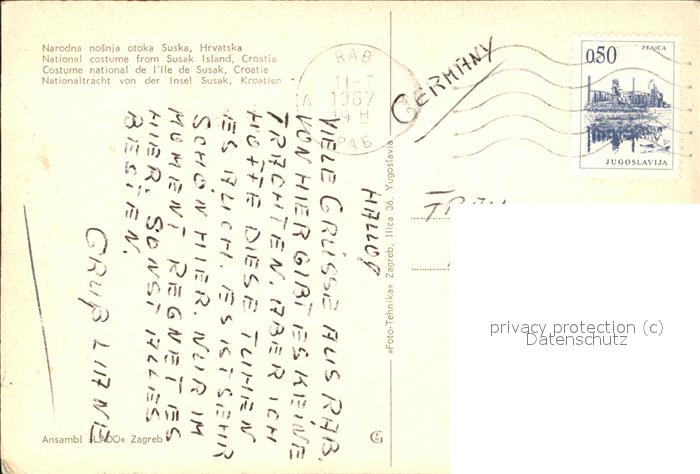 Narodna nošnja otoka Suska, Hrvatska
National costume from Susak Island, Croatia
Costume national de l'île de Susak, Croatie
Nationaltracht von der Insel Susak, Kroatien
RAB
11-7
1967
9 H
A
РАБ
GERMANY
0,50
ZENICA
JUGOSLAVIJA
HALLO!
VIELE GRÜSSE AUS RAB.
VON HIER GIBT ES KEINE
TRACHTEN. ABER ICH
HOFFE DIESE TUHEN
ES AUCH. ES IST SEHR
SCHÖN HIER. NUR IM
MOMENT REGNET ES
HIER. SONST ALLES
BESTEN.
GRUß LIANE
»Foto-Tehnika« Zagreb, Ilica 36, Yugoslavia
Ansambl »LADO« Zagreb
privacy protection (c)
Datenschutz